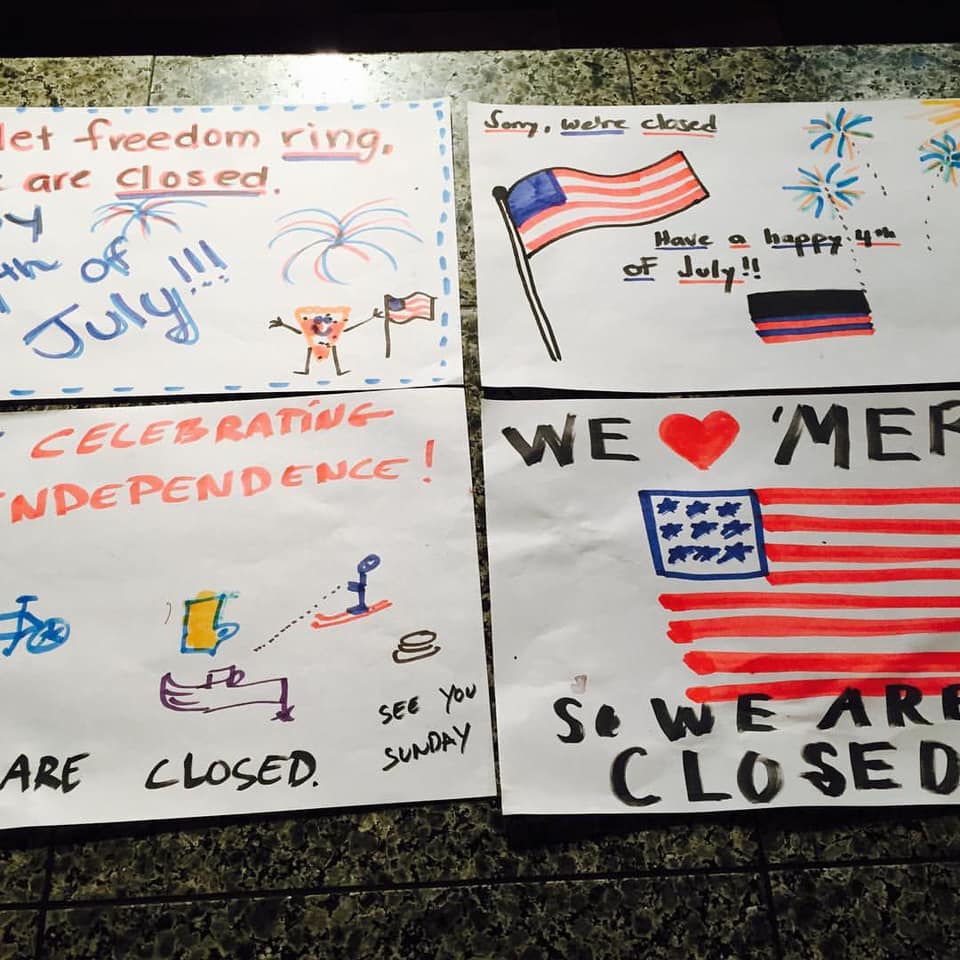 let freedom ring,
are closed.
of
July!!!
Sorry, we're closed
Have a happy 4th
of July!!
CELEBRATING
INDEPENDENCE!
SEE YOU
SUNDAY
ARE CLOSED.
WE ❤ 'MER
So WE ARE
CLOSED